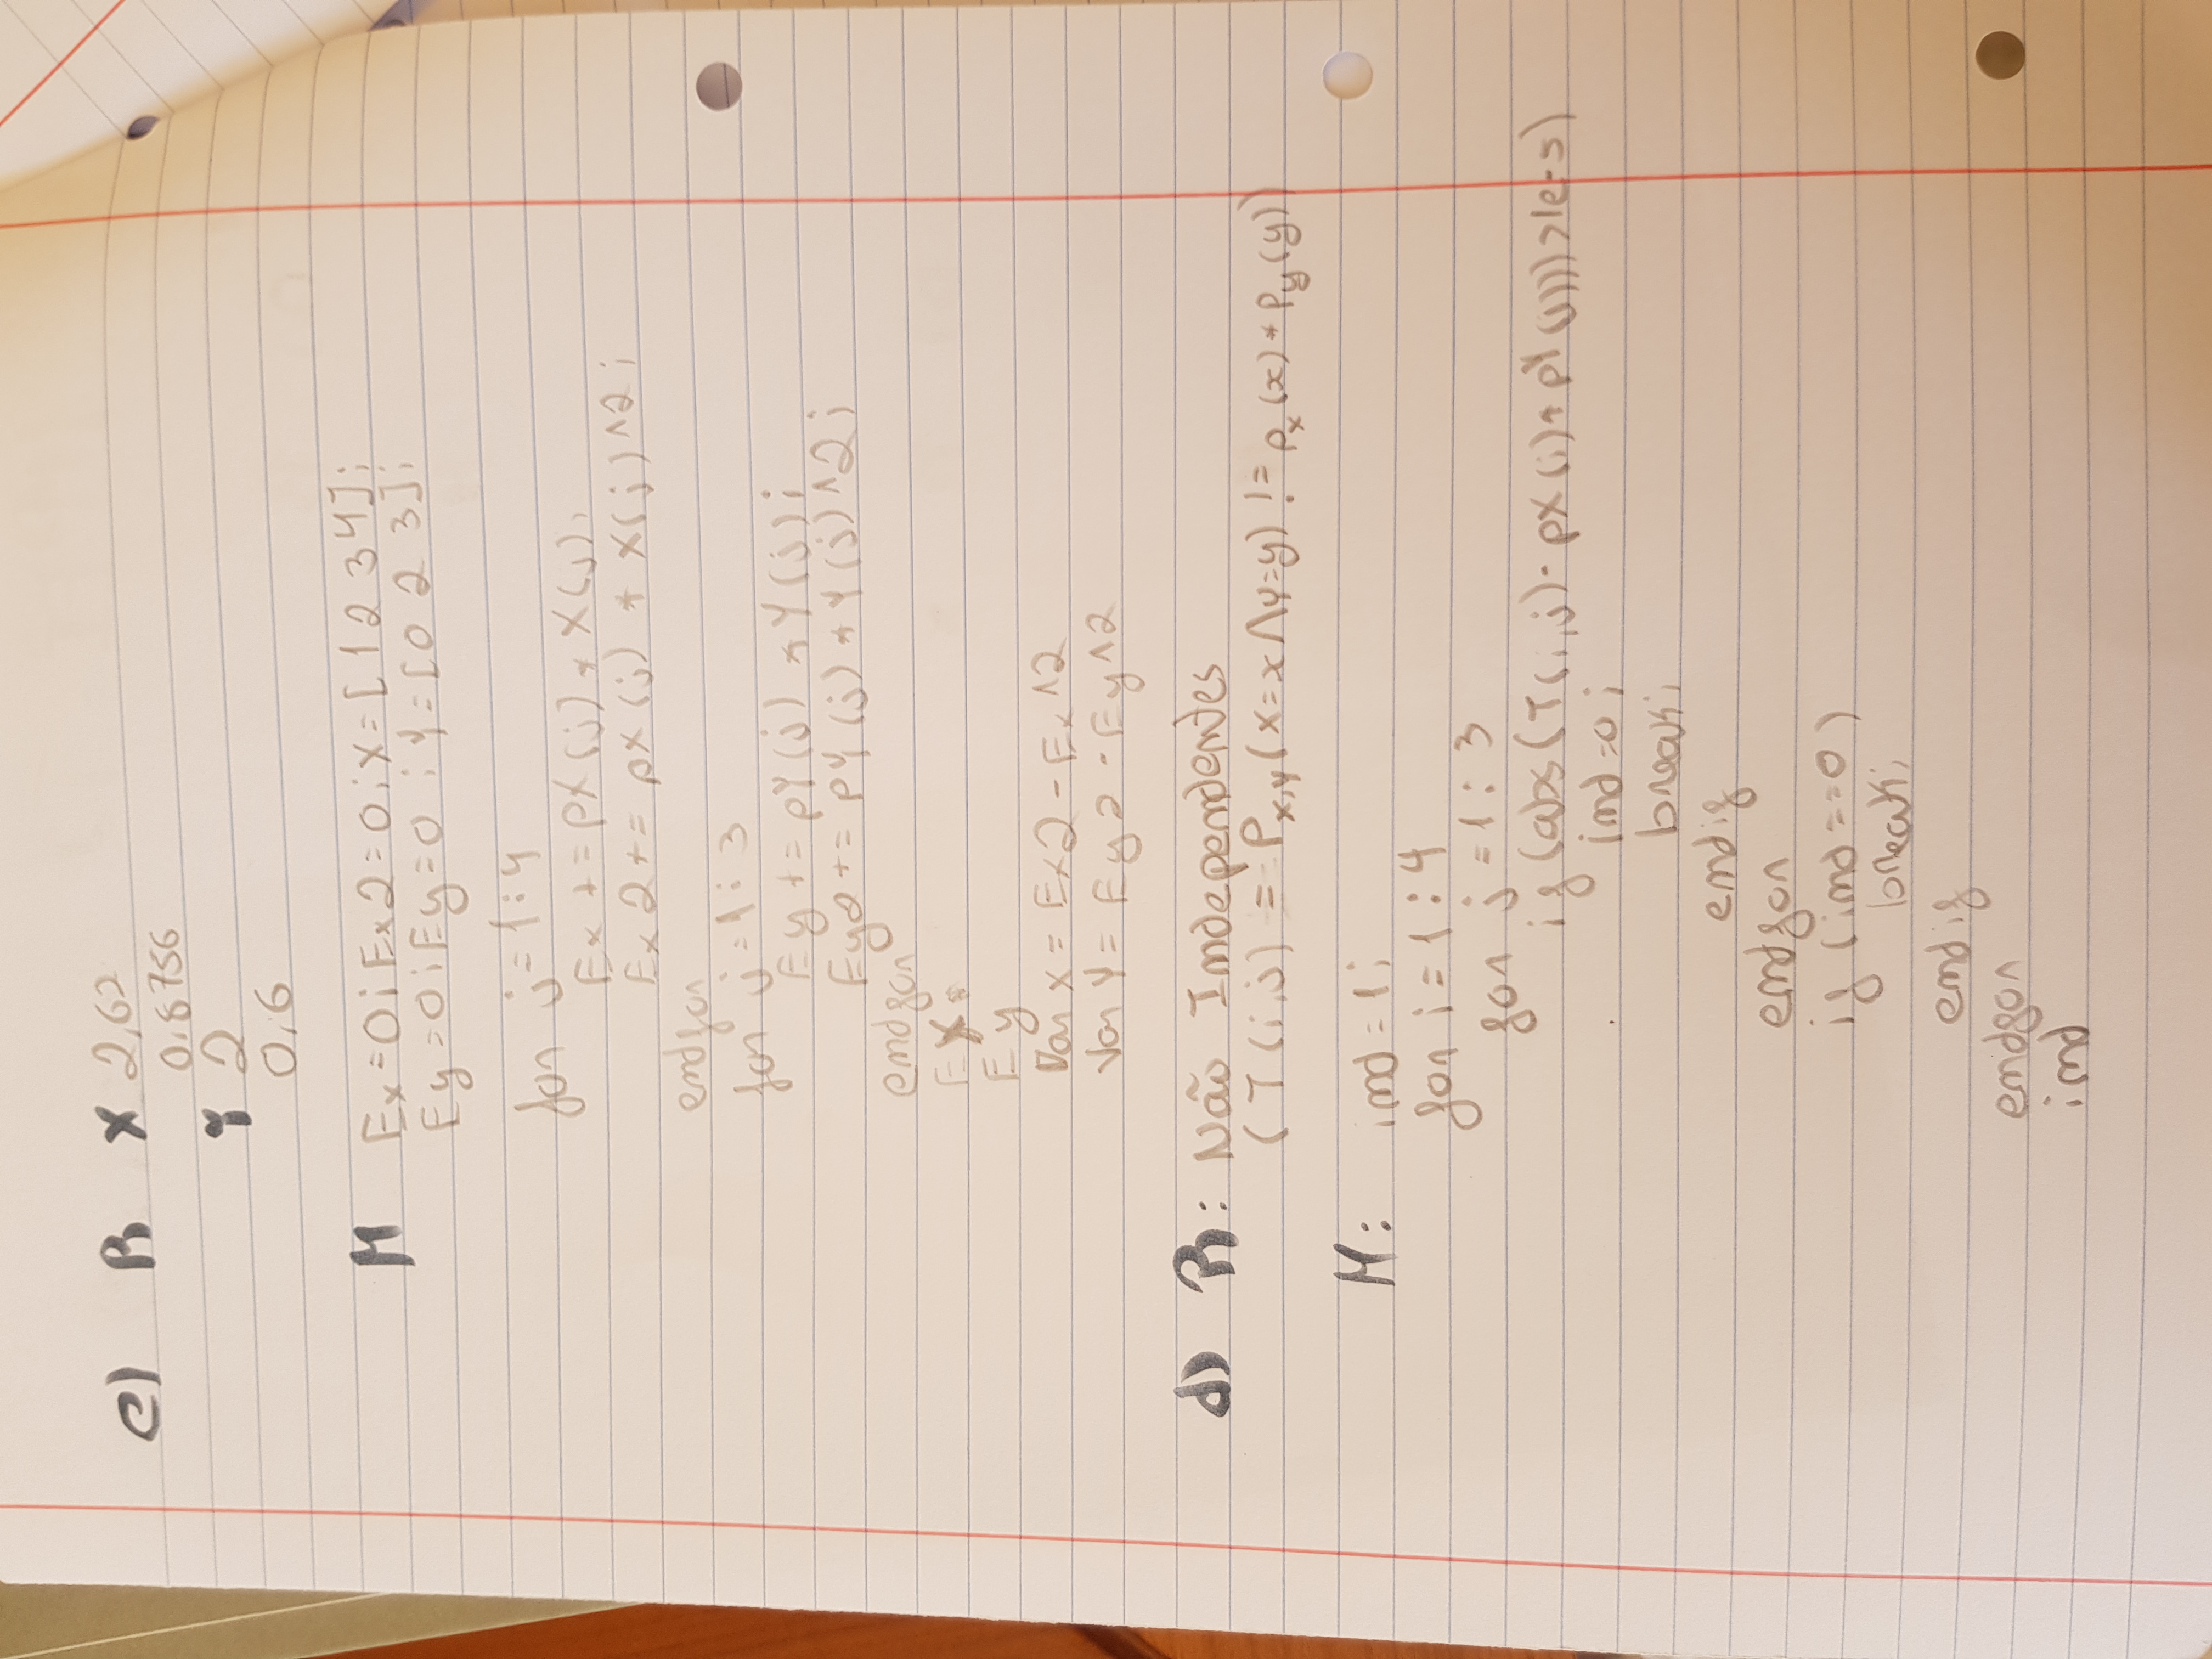 c) R X 2,62
0,8756
Y 2
0,6
M Ex=0; Ex2=0; X=[1 2 3 4];
Ey=0; Ey=0; Y=[0 2 3];
for j=1:4
Ex += pX(j) * X(j);
Ex2 += pX(j) * X(j)^2;
endfor
for j=1:3
Ey += pY(j) * Y(j);
Ey2 += pY(j) * Y(j)^2;
endfor
Ex
Ey
Var X = Ex2 - Ex^2
Var Y = Ey2 - Ey^2
d) R: Não Independentes
(T(i,j) = Px,y(X=x ∧ Y=y) != px(x) * Py(y))
M: ind=1;
for i=1:4
for j=1:3
if (abs(T(i,j) - pX(i)*pY(j)))>1e-5)
ind=0;
break;
endif
endfor
if (ind==0)
break;
endif
endfor
ind